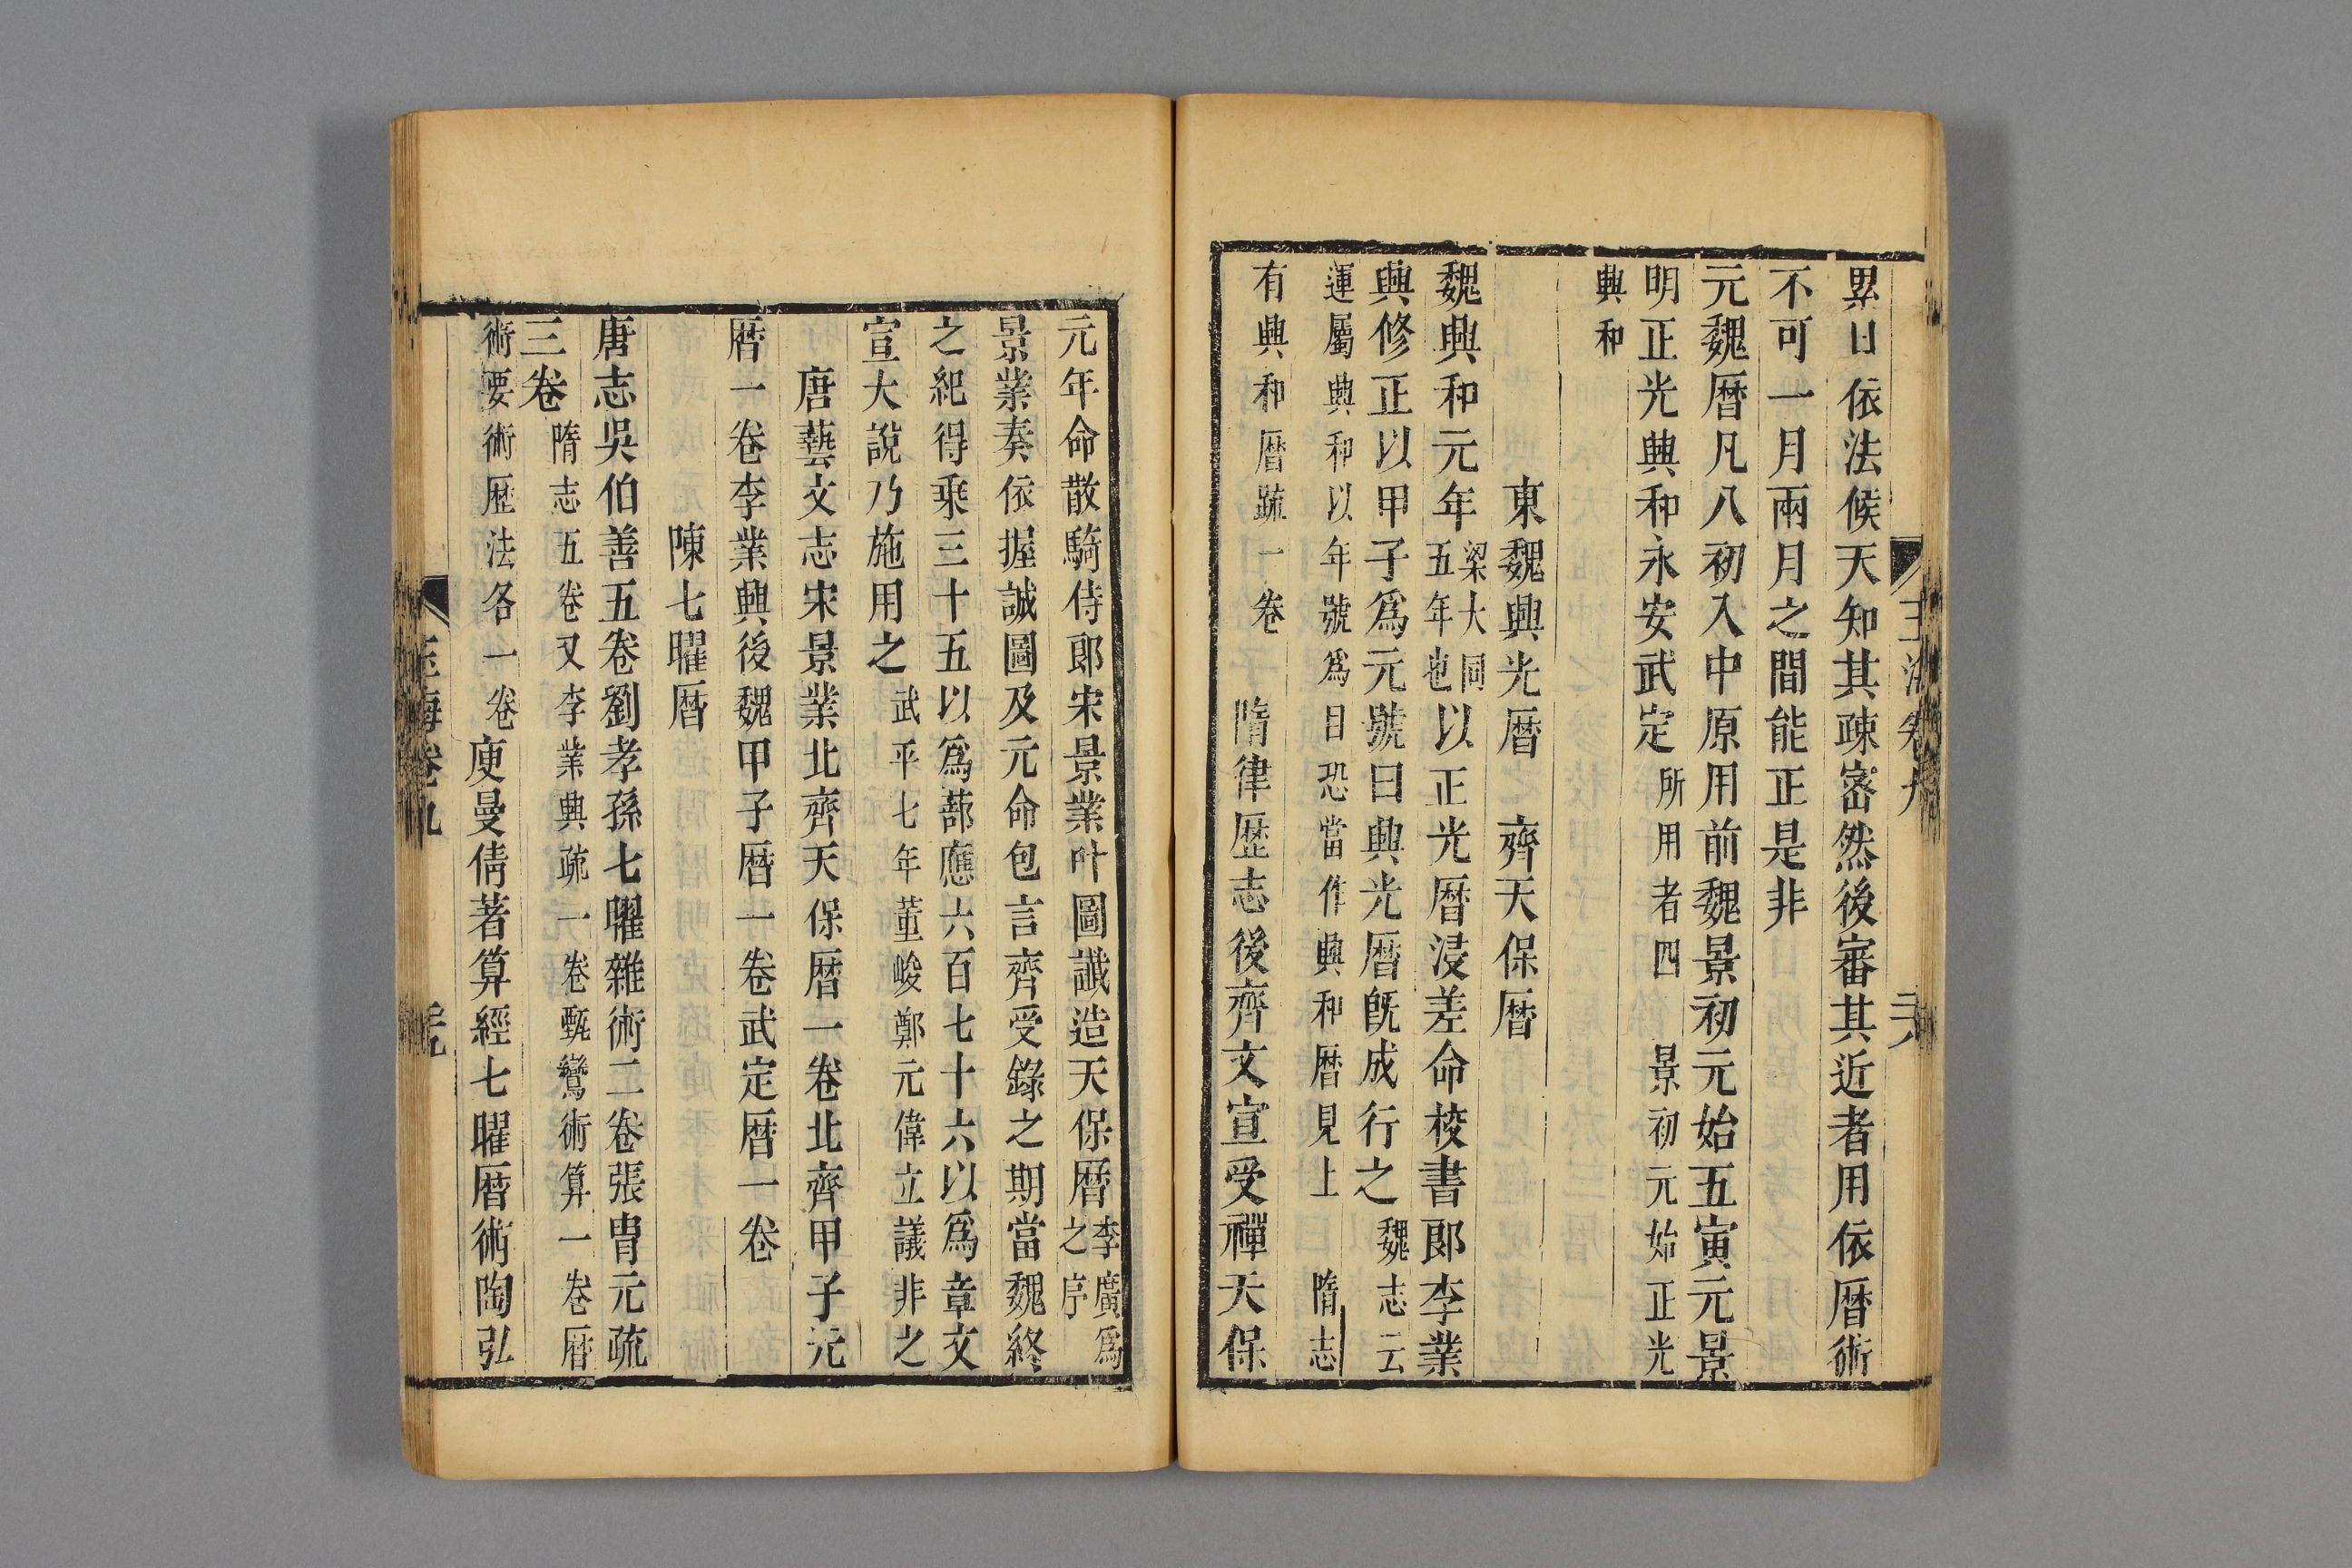 累日依法候天知其疎宻然後審其近者用依曆術
不可一月兩月之間能正是非
元魏曆凡八初入中原用前魏景初元始五寅元景
明正光興和永安武定所用者四 景初元始正光
興和
東魏興光曆 齊天保曆
魏興和元年梁大同五年也以正光曆浸差命校書郎李業
興修正以甲子爲元號曰興光曆既成行之魏志云
運屬興和以年號爲目恐當作興和曆見上 隋志
有興和曆疏一卷 隋律歷志後齊文宣受禪天保
元年命散騎侍郎宋景業叶圖讖造天保曆李廣爲之序
景業奏依握誠圖及元命包言齊受錄之期當魏終
之紀得乗三十五以爲蔀應六百七十六以爲章文
宣大說乃施用之武平七年董峻鄭元偉立議非之
唐藝文志宋景業北齊天保曆一卷北齊甲子元
曆一卷李業興後魏甲子曆一卷武定曆一卷
陳七曜曆
唐志吳伯善五卷劉孝孫七曜雜術二卷張冑元疏
三卷隋志五卷又李業興疏一卷甄鸞術算一卷曆
術要術歷法各一卷庾曼倩著算經七曜曆術陶弘
玉海卷九